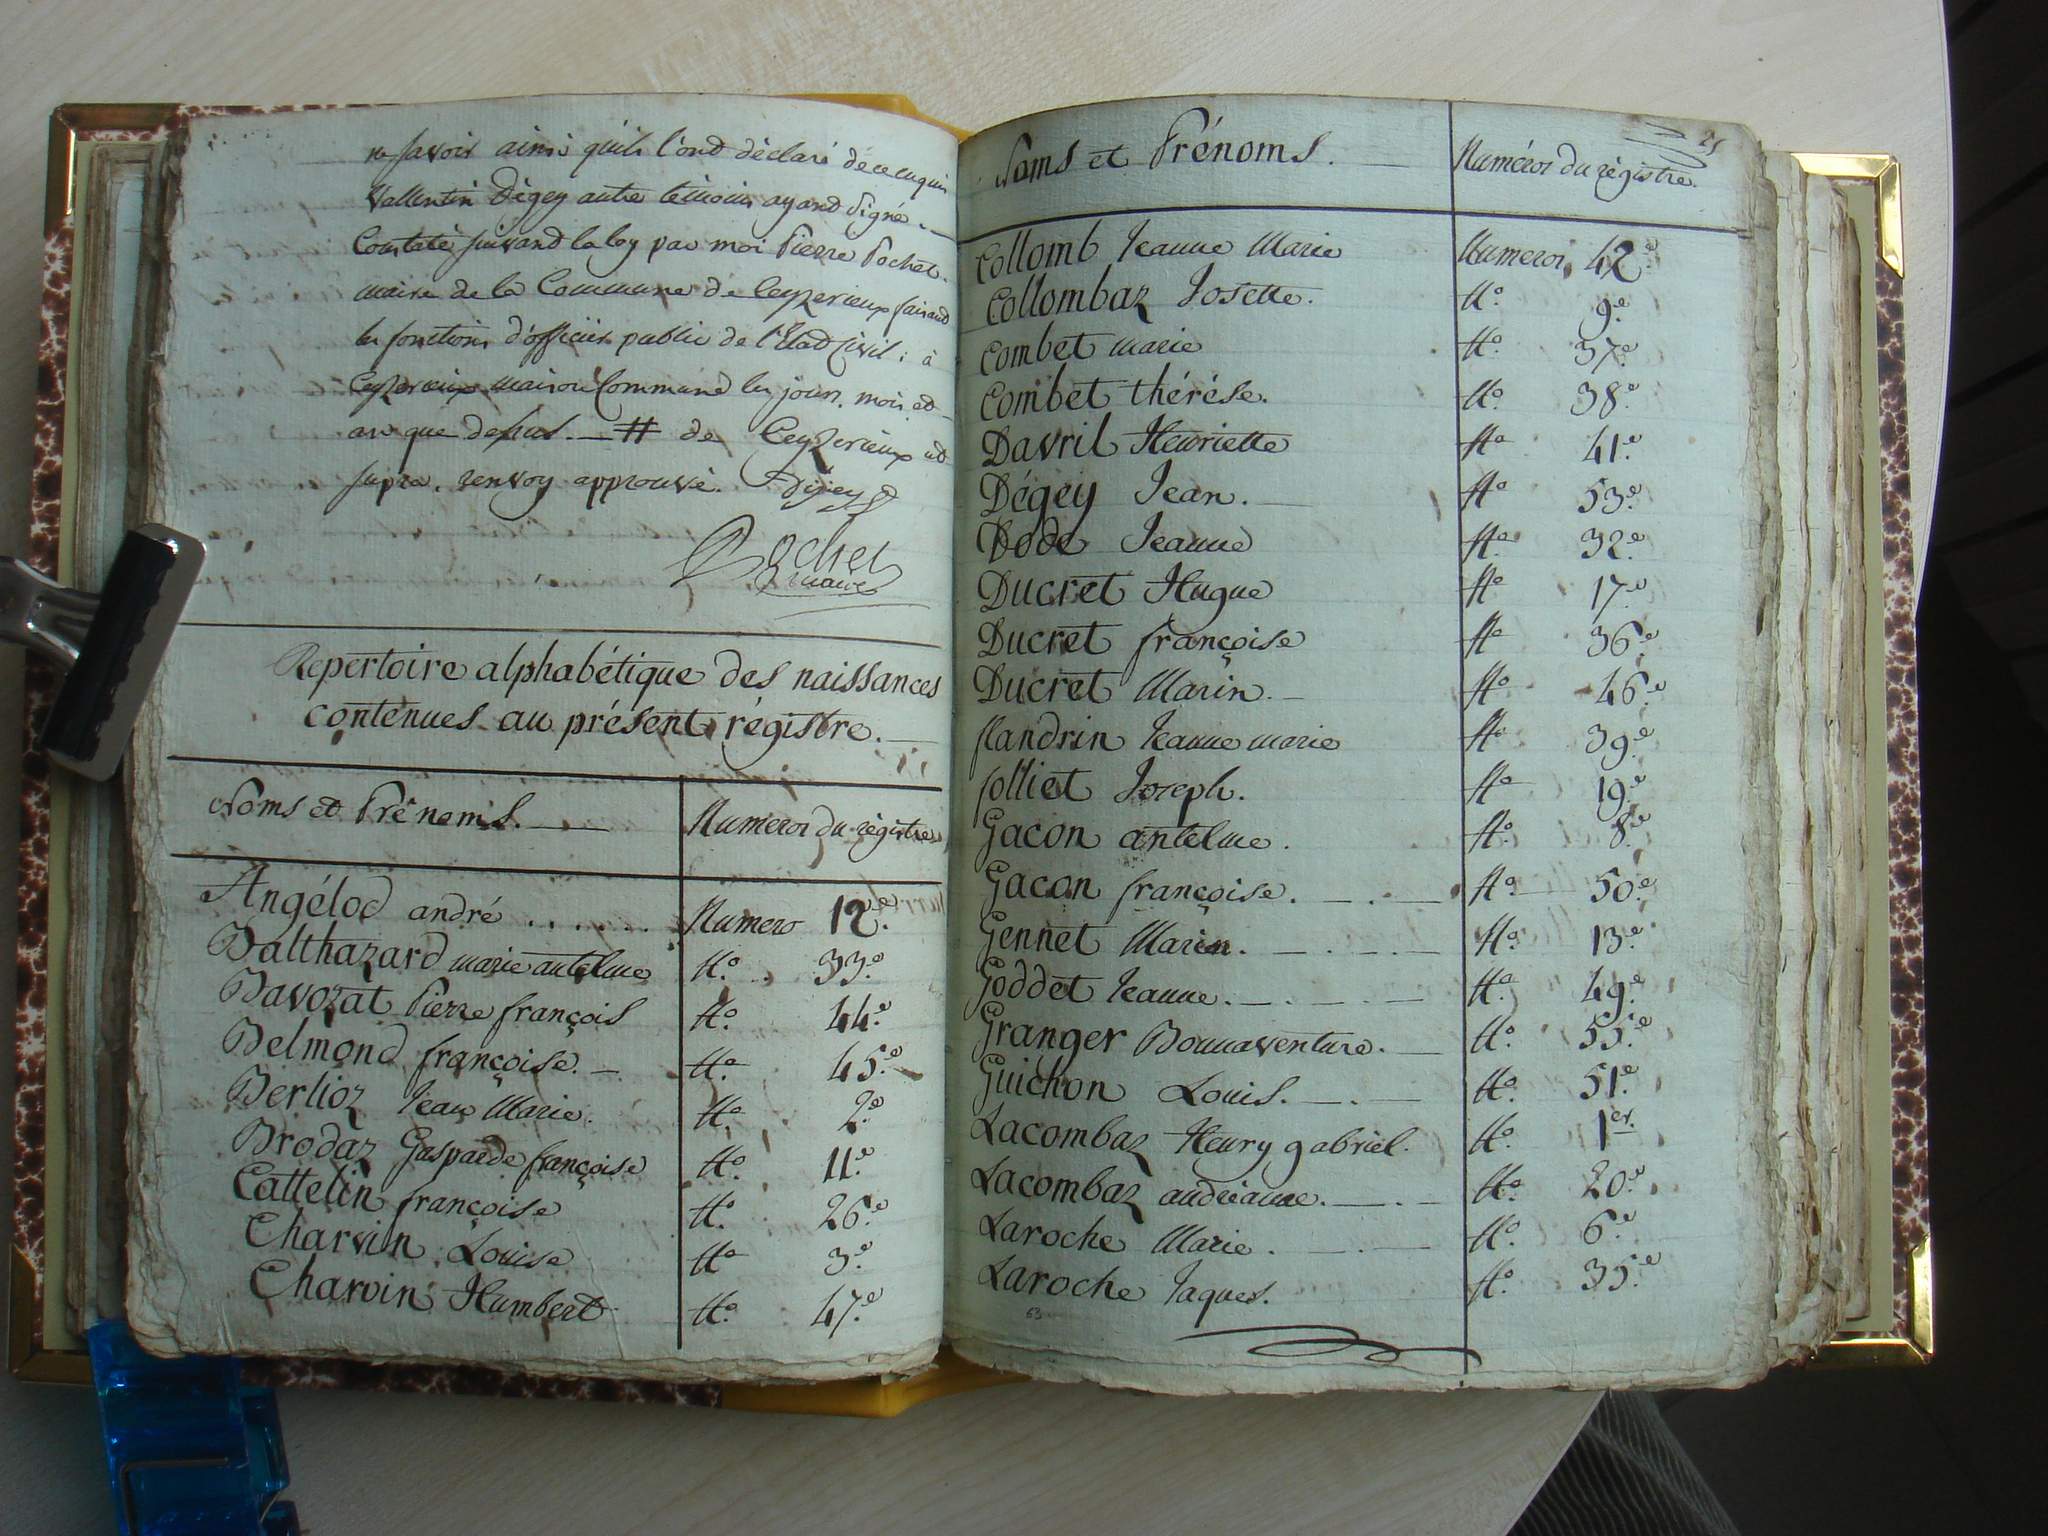 ne savoir ainsi qu'ils l'ond déclaré de ce enquis
Vallentin Dégey autre témoin ayand Signé. —
Constaté suivand la loy par moi Pierre Pochet.
maire de la Commune de Ceyzerieux faisand
les fonctions d'officier public de l'Etad Civil; à
Ceyzerieux maison Commune les jour, mois, ed
an que dessus. — # de Ceyzerieux ud
supra. renvoy approuvé. Dégey
Pochet
maire
Repertoire alphabétique des naissances
contenues au présent régistre. —
Noms et Prénoms. — Numeros du régistre
Angélod andré . . . . . . Numero 12.e
Balthazard marie antelme N.o 33.e
Bavozat Pierre françois N.o 44.e
Belmond françoise. — N.o 45.e
Berlioz Jean Marie. N.o 2.e
Brodaz Gasparde françoise N.o 11.e
Cattelin françoise N.o 26.e
Charvin Louise N.o 3.e
Charvin Humbert N.o 47.e
25
Noms et Prénoms. — Numéros du régistre.
Collomb Jeanne Marie Numeros 42.e
Collombaz Josette. N.o 9.e
Combet marie N.o 37.e
Combet thérése. N.o 38.e
Davril Henriette N.o 41.e
Dégey Jean. — N.o 53.e
Dode Jeanne N.o 32.e
Ducret Hugue N.o 17.e
Ducret françoise N.o 36.e
Ducret Marin. — N.o 46.e
flandrin Jeanne marie N.o 39.e
folliet Joseph. N.o 19.e
Gacon antelme. N.o 8.e
Gacon françoise. — . — . — N.o 50.e
Gennet Marin. — . — . — N.o 13.e
Goddet Jeanne. — . — . — N.o 49.e
Granger Bonnaventure. — N.o 55.e
Guichon Louis. — . — N.o 51.e
Lacombaz Henry gabriel. N.o 1er.
Lacombaz andrianne. — . — N.o 20.e
Laroche Marie. — . — N.o 6.e
Laroche Jaques. N.o 35.e
53